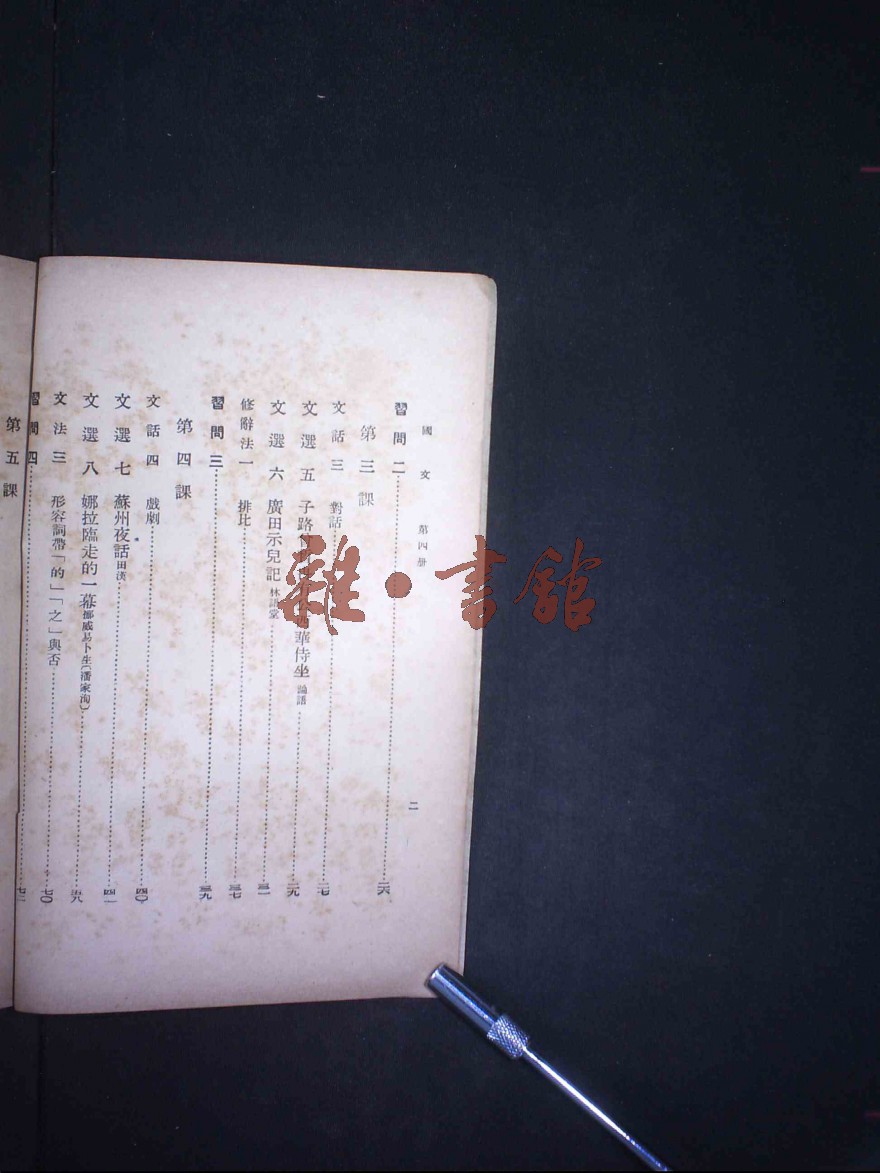 國文 第四册 二
習問二 二六
第三課
文話三 對話 二七
文選五 子路 華侍坐 論語 二九
文選六 廣田示兒記 林語堂 三一
修辭法一 排比 三七
習問三 三九
第四課
文話四 戲劇 四〇
文選七 蘇州夜話 田漢 四一
文選八 娜拉臨走的一幕 挪威易卜生(潘家洵) 五八
文法三 形容詞帶「的」「之」與否 七〇
習問四 七二
第五課
雜·書館